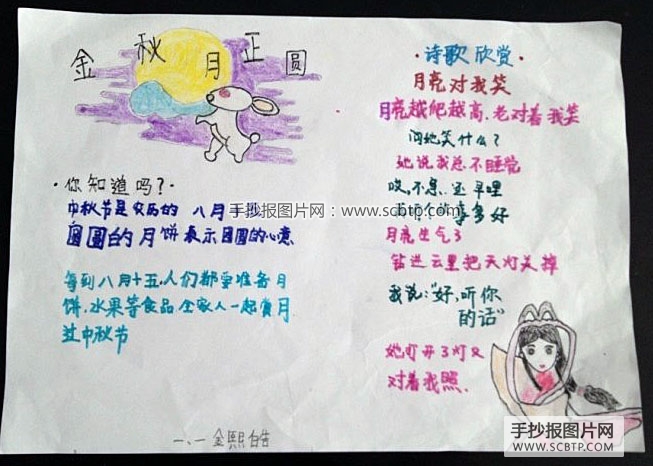 金秋月正圆
·你知道吗?·
中秋节是农历的 八月十
圆圆的月饼表示团圆的心意
每到八月十五,人们都要准备月
饼,水果等食品,全家人一起赏月
过中秋节
·诗歌欣赏·
月亮对我笑
月亮越爬越高,老对着我笑
问她笑什么?
她说我总不睡觉
哎,不急,还早哩
事多好
月亮生气了
钻进云里把天灯关掉
我说:“好,听你
的话”
她打开了灯又
对着我照.
一、一 金熙皓
手抄报图片网:www.scbtp.com
手抄报图片网
SCBTP.COM